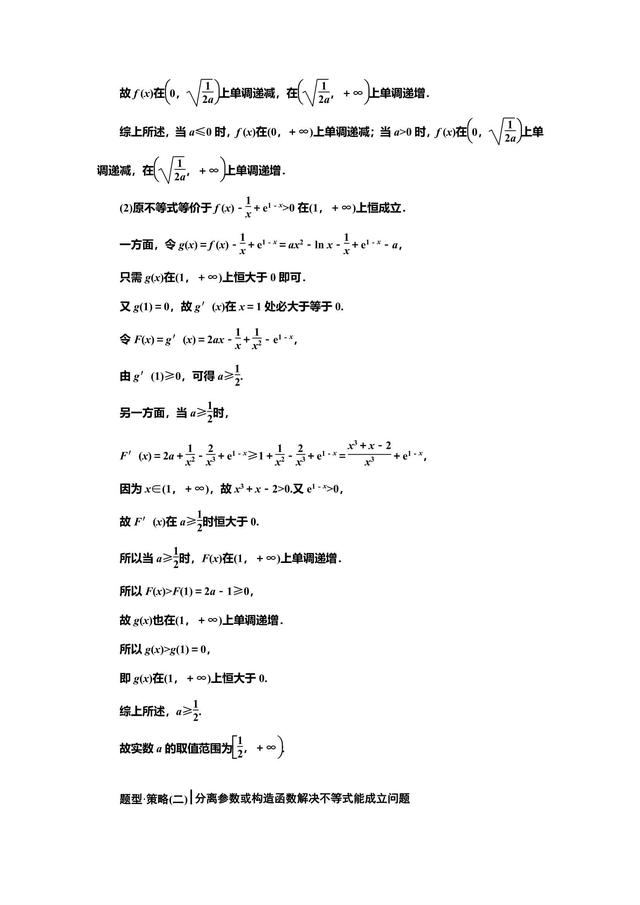 故 f (x)在(0，√(1/2a))上单调递减，在(√(1/2a)，+∞)上单调递增．
综上所述，当 a≤0 时，f (x)在(0，+∞)上单调递减；当 a>0 时，f (x)在(0，√(1/2a))上单
调递减，在(√(1/2a)，+∞)上单调递增．
(2)原不等式等价于 f (x)-1/x+e^(1-x)>0 在(1，+∞)上恒成立．
一方面，令 g(x)=f (x)-1/x+e^(1-x)=ax2-ln x-1/x+e^(1-x)-a，
只需 g(x)在(1，+∞)上恒大于 0 即可．
又 g(1)=0，故 g′(x)在 x=1 处必大于等于 0.
令 F(x)=g′(x)=2ax-1/x+1/x²-e^(1-x)，
由 g′(1)≥0，可得 a≥1/2.
另一方面，当 a≥1/2时，
F′(x)=2a+1/x²-2/x³+e^(1-x)≥1+1/x²-2/x³+e^(1-x)=(x³+x-2)/x³+e^(1-x)，
因为 x∈(1，+∞)，故 x³+x-2>0.又 e^(1-x)>0，
故 F′(x)在 a≥1/2时恒大于 0.
所以当 a≥1/2时，F(x)在(1，+∞)上单调递增．
所以 F(x)>F(1)=2a-1≥0，
故 g(x)也在(1，+∞)上单调递增．
所以 g(x)>g(1)=0，
即 g(x)在(1，+∞)上恒大于 0.
综上所述，a≥1/2.
故实数 a 的取值范围为[1/2，+∞).
题型·策略(二)|分离参数或构造函数解决不等式能成立问题